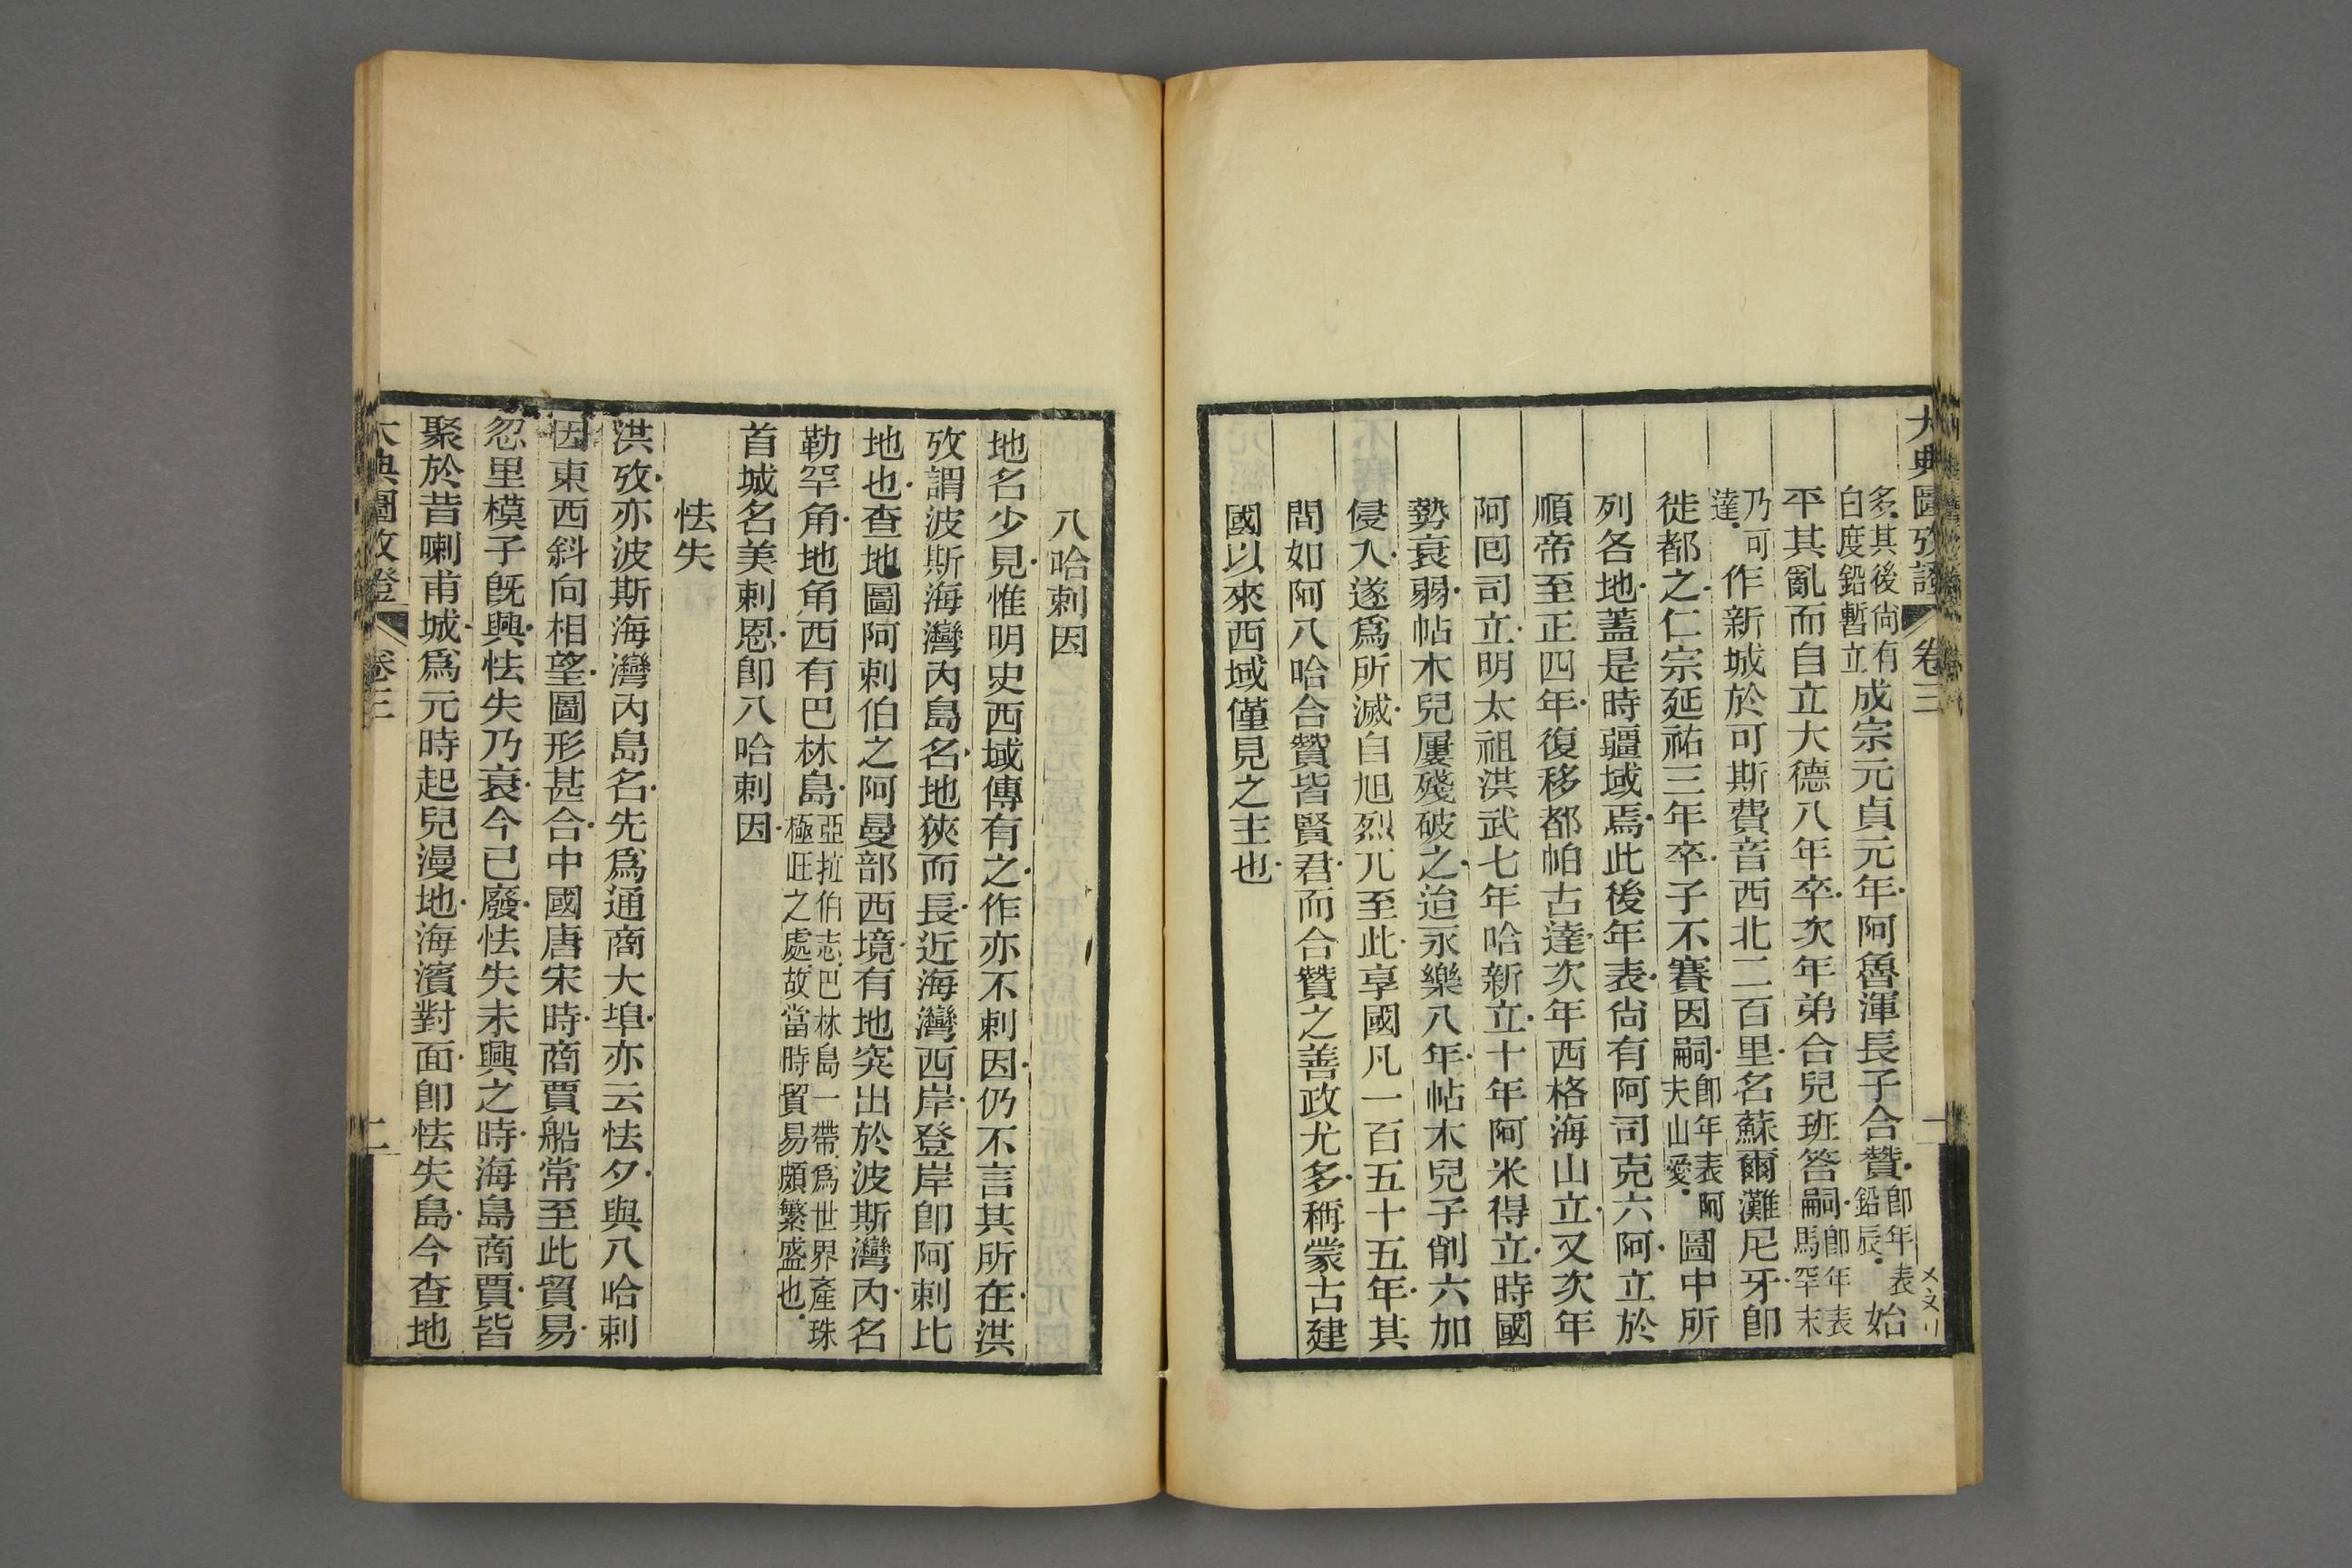 大典圖攷證 卷三 一
多其後尚有白度鉛暫立成宗元貞元年阿魯渾長子合贊即年表鉛辰始
平其亂而自立大德八年卒次年弟合兒班答嗣即年表馬罕末
乃可達作新城於可斯費音西北二百里名蘇爾灘尼牙卽
徙都之仁宗延祐三年卒子不賽因嗣卽年表阿夫山愛圖中所
列各地蓋是時疆域焉此後年表尙有阿司克六阿立於
順帝至正四年復移都帕古達次年西格海山立又次年
阿囘司立明太祖洪武七年哈新立十年阿米得立時國
勢衰弱帖木兒屢殘破之迨永樂八年帖木兒子削六加
侵入遂爲所滅自旭烈兀至此享國凡一百五十五年其
間如阿八哈合贊皆賢君而合贊之善政尤多稱蒙古建
國以來西域僅見之主也
八哈剌因
地名少見惟明史西域傳有之作亦不剌因仍不言其所在洪
攷謂波斯海灣內島名地狹而長近海灣西岸登岸卽阿剌比
地也查地圖阿剌伯之阿曼部西境有地突出於波斯灣內名
勒罕角地角西有巴林島亞拉伯志巴林島一帶爲世界產珠極旺之處故當時貿易頗繁盛也
首城名美剌恩卽八哈剌因
怯失
洪攷亦波斯海灣內島名先爲通商大埠亦云怯夕與八哈剌
因東西斜向相望圖形甚合中國唐宋時商賈船常至此貿易
忽里模子旣興怯失乃衰今已廢怯失未興之時海島商賈皆
聚於昔喇甫城爲元時起兒漫地海濱對面卽怯失島今查地
大典圖攷證 卷三 二